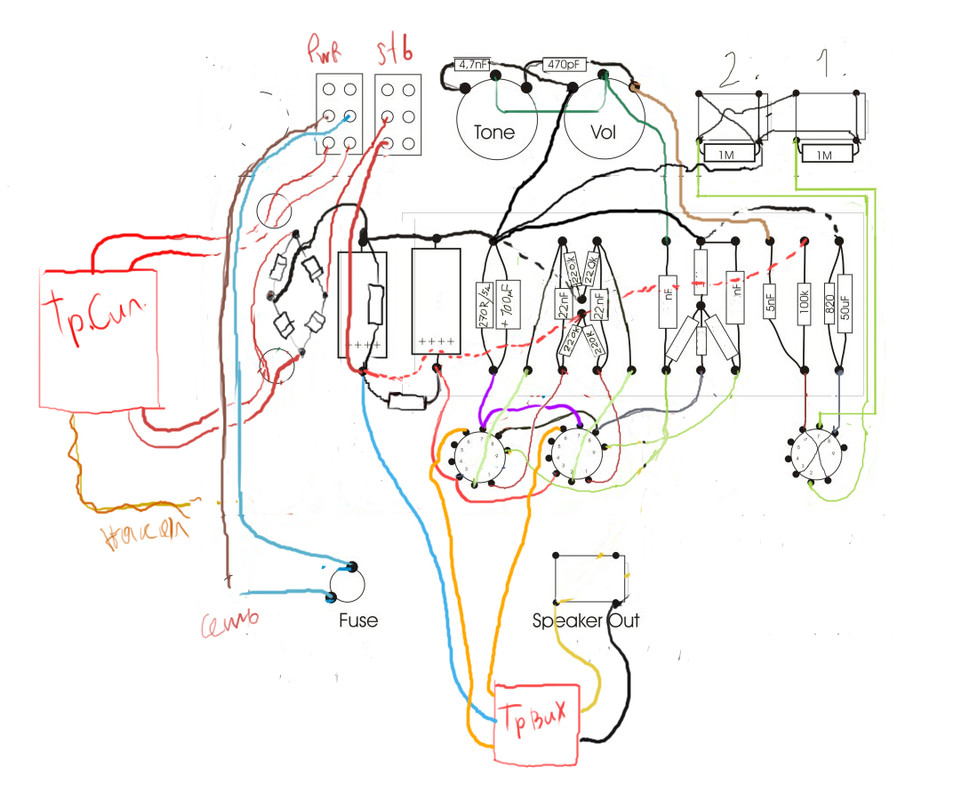 Pwr
stb
4,7nF
470pF
2.
1.
Tone
Vol
1M
1M
Тр.Сил.
270R/5w
+ 100µF
22nF
220k
220k
22nF
220k
220k
nF
nF
5nF
100k
820
50uF
++++
++++
накал
Сеть
Fuse
Speaker Out
Тр Вых